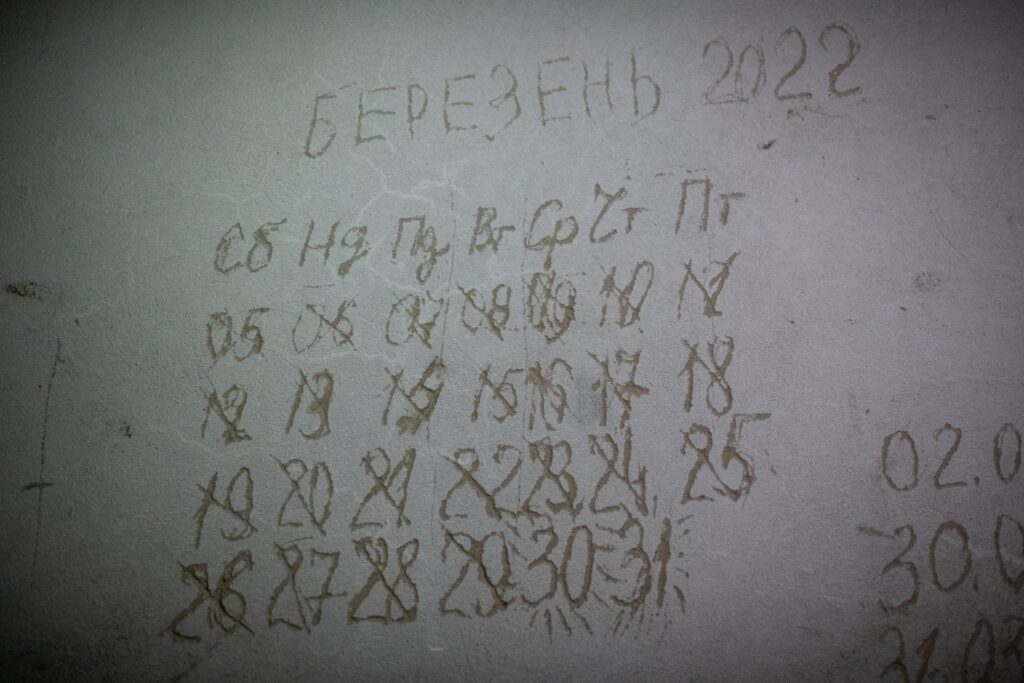 БЕРЕЗЕНЬ 2022
Сб Нд Пд Вт Ср Чт Пт
05 06 07 08 09 10 11
12 13 14 15 16 17 18
19 20 21 22 23 24 25
26 27 28 29 30 31
02.0
30.0
31.03